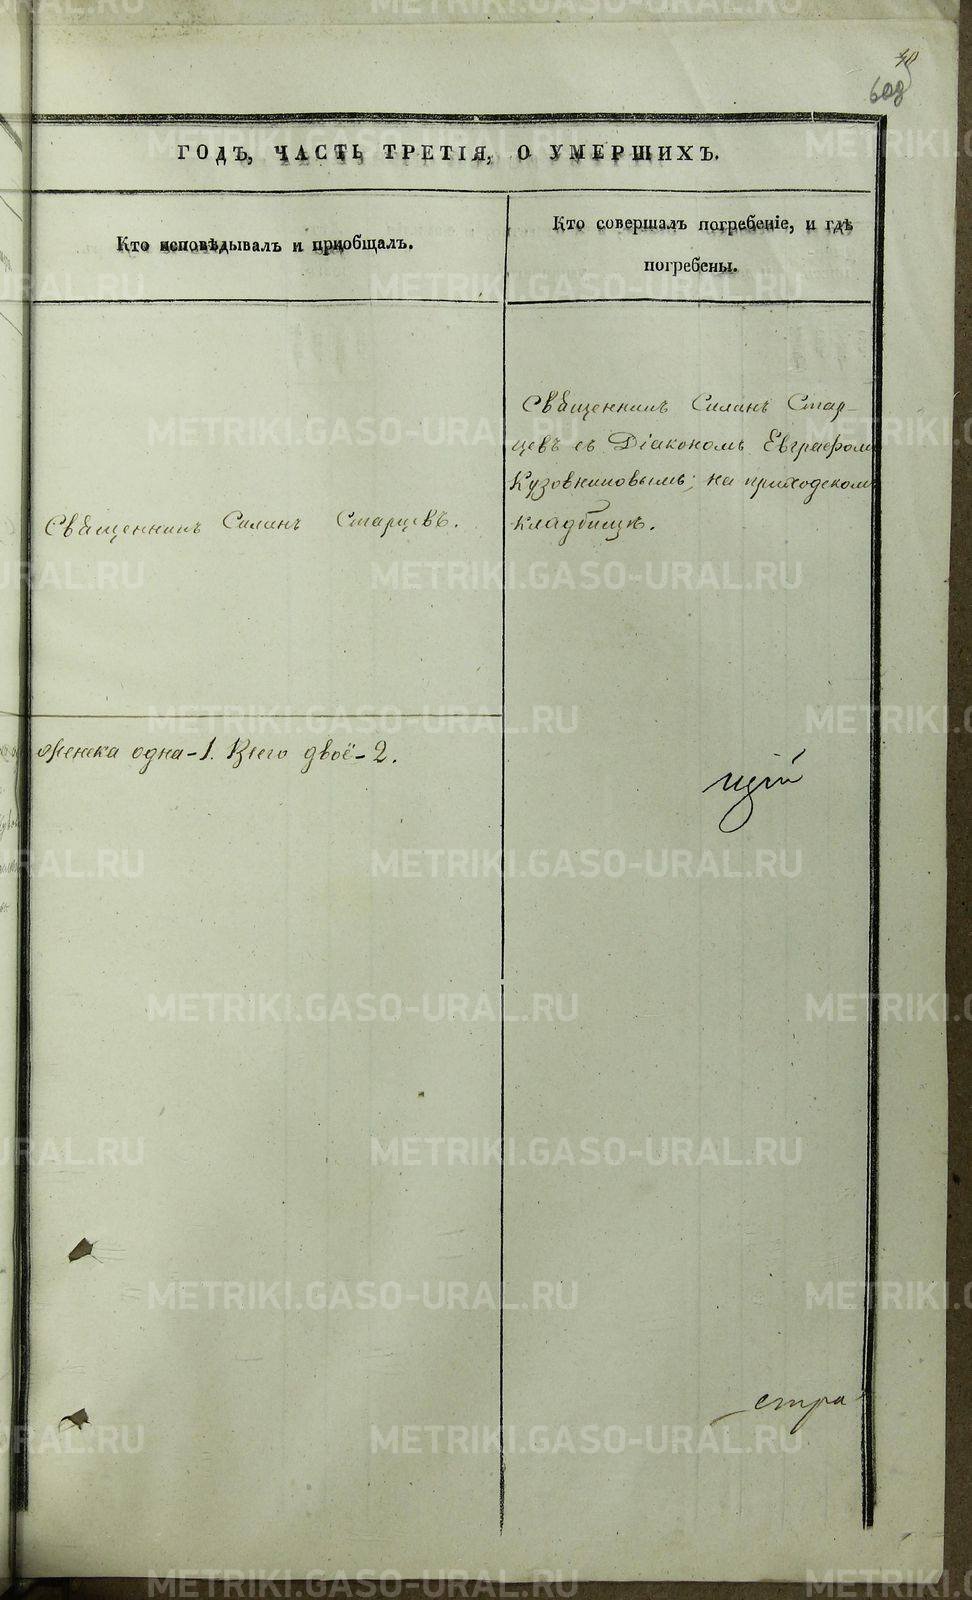 40
608
ГОДЪ, ЧАСТЬ ТРЕТІЯ, О УМЕРШИХЪ.
Кто исповѣдывалъ и пріобщалъ.
Кто совершалъ погребеніе, и гдѣ
погребены.
Священникъ Силинъ Старцевъ.
Священникъ Силинъ Стар-
цевъ съ Діакономъ Евграфомъ
Кузовниковымъ; на приходскомъ
кладбищѣ.
женска одна-1. Всего двоё-2.
стра
METRIKI.GASO-URAL.RU